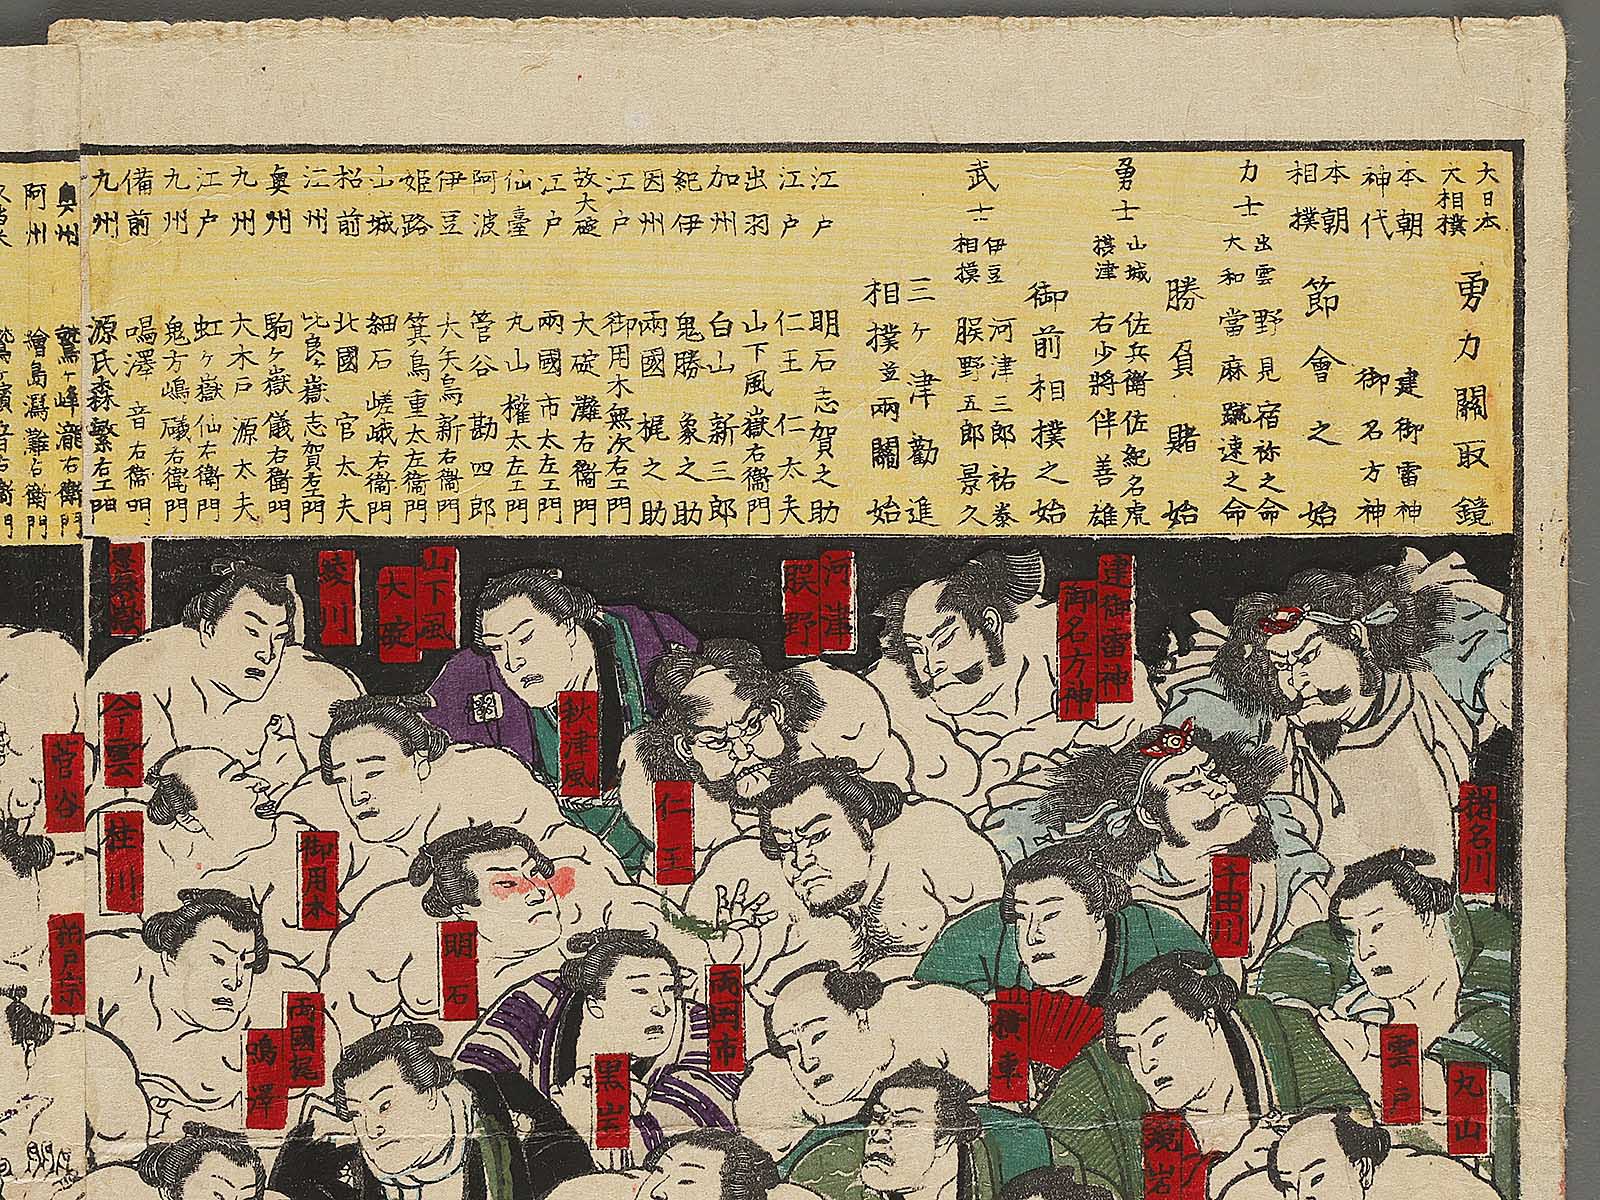 大日本
大相撲
勇力關取鏡
本朝 建御雷神
神代 御名方神
本朝
相撲
節會之始
力士 出雲 野見宿祢之命
大和 當麻蹴速之命
勝負賭始
勇士 山城 佐兵衛佐紀名虎
摂津 右少將伴善雄
御前相撲之始
武士 伊豆 河津三郎祐泰
相摸 股野五郎景久
三ヶ津勸進
相撲並兩關始
江戸 明石志賀之助
江戸 仁王仁太夫
出羽 山下風嶽右衛門
加州 白山新三郎
紀伊 鬼勝象之助
因州 兩國梶之助
江戸 御用木無次右エ門
故大碇 大碇灘右衛門
江戸 兩國市太左エ門
仙臺 丸山權太左エ門
阿波 菅谷勘四郎
伊豆 大矢烏新右衛門
姫路 箕烏重太左衛門
山城 細石嵯峨右衛門
招前 北國官太夫
江州 比良ヶ嶽志賀右エ門
奥州 駒ヶ嶽儀右衛門
九州 大木戸源太夫
江戸 虹ヶ嶽仙右衛門
九州 鬼方嶋礒右衛門
備前 鳴澤音右衛門
九州 源氏森繁右エ門
奥州 鷲ヶ峰瀧右衛門
阿州 檜島潟灘右衛門
建御雷神
御名方神
河津
股野
山下風
大碇
綾川
秋津風
仁王
御用木
明石
今出雲
桂川
菅谷
柏戸宗
両國梶
鳴澤
黒岩
両国市
横車
千田川
猪名川
雲戸
丸山
鏡岩